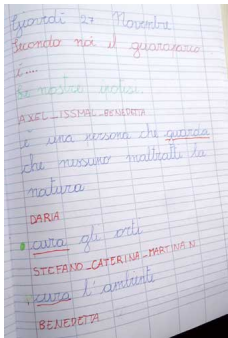 Giovedì 27 Novembre
Secondo noi il guardiano
è....
Le nostre
AXEL_ISSMAL_BENEDETTA
È una persona che guarda
che nessuno maltratti la
natura
DARIA
cura gli orti
STEFANO_CATERINA_MARTINA N.
cura l'ambiente
BENEDETTA